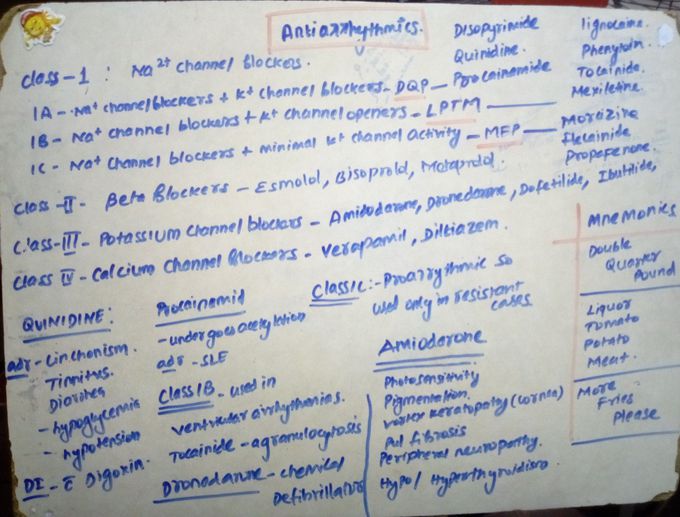 Antiarrhythmics.
Class-1 : Na²⁺ channel blockers.
1A - Na⁺ channel blockers + K⁺ channel blockers - DQP - Disopyrimide Quinidine. Procainamide
1B - Na⁺ channel blockers + K⁺ channel openers - LPTM - lignocaine. Phenytoin. Tocainide. Mexiletine.
1C - Na⁺ channel blockers + minimal K⁺ channel activity - MEP - Moricizine Flecainide Propafenone.
Class-II - Beta Blockers - Esmolol, Bisoprolol, Metoprolol.
Class-III - Potassium Channel blockers - Amiodarone, Dronedarone, Dofetilide, Ibutilide,
Class IV - Calcium Channel Blockers - Verapamil, Diltiazem.
Mnemonics
Double
Quarter
Pound
Liquor
Tomato
Potato
Meat.
More
Fries
Please
QUINIDINE:
adr - Cinchonism.
Tinnitus.
Diarrhea
- hypoglycemia
- hypotension
DI - c̄ Digoxin.
Procainamid
- undergoes acetylation
adr - SLE
Class 1B - used in
ventricular arrhythmias.
Tocainide - agranulocytosis
Dronedarone - chemical
Defibrillator
Class 1C :- Proarrythmic so
used only in resistant
cases
Amiodarone
Photosensitivity
Pigmentation.
Vortex keratopathy (cornea)
Pul fibrosis
Peripheral neuropathy.
Hypo/ Hyperthyroidism